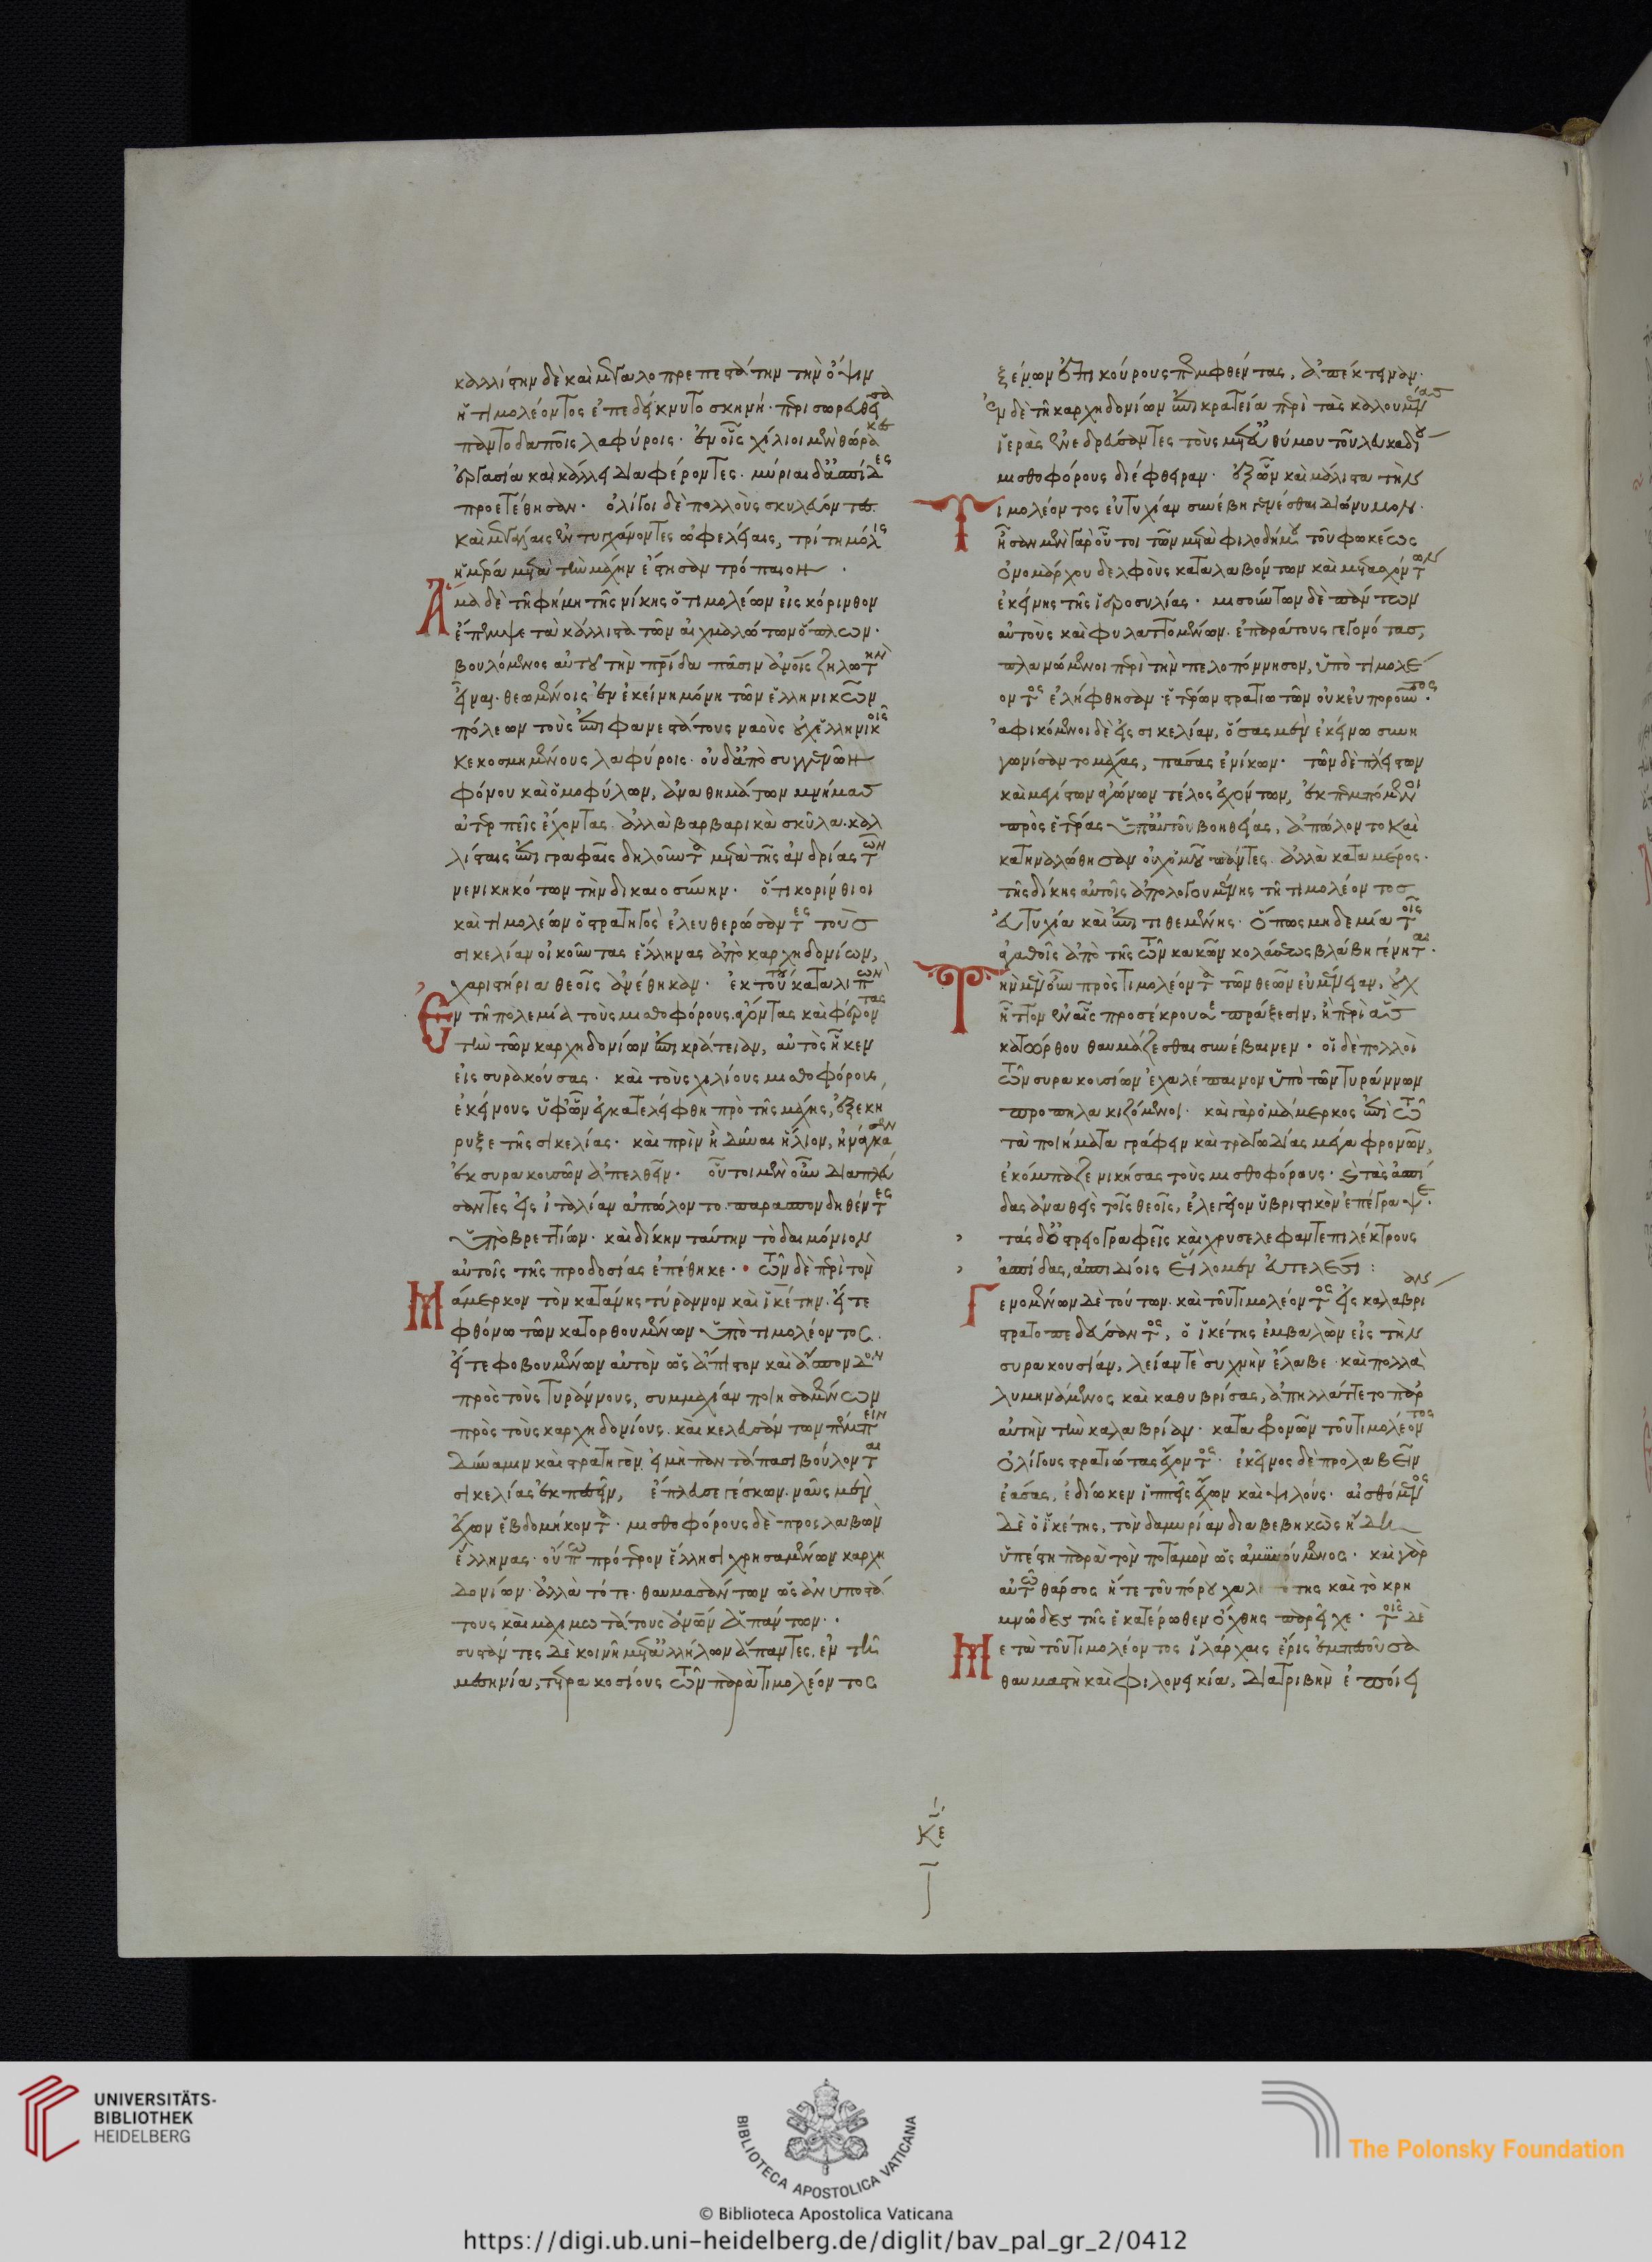 καλλίστην δὲ καὶ μεγαλοπρεπεστάτην τὴν ὄψιν
ἡ τιμολέοντος ἐπεδείκνυτο σκηνή· περισωρευθεῖσα
παντοδαποῖς λαφύροις· ἐν οἷς χίλιοι μὲν θώρακες
ἐργασία καὶ κάλλει διαφέροντες· μύριαι δ' ἀσπίδες
προετέθησαν· ὀλίγοι δὲ πολλοὺς σκυλεύοντες
καὶ μεγάλαις ἐντυγχάνοντες ὠφελείαις, τρίτη μόλις
ἡμέρα μετὰ τὴν μάχην ἔστησαν τρόπαιον·
Ἅμα δὲ τῇ φήμη τῆς νίκης ὁ τιμολέων εἰς κόρινθον
ἔπεμψε τὰ κάλλιστα τῶν αἰχμαλώτων ὅπλων·
βουλόμενος αὐτοῦ τὴν πατρίδα πᾶσιν ἀνθρώποις ζηλωτὴν
εἶναι· θεωμένοις ἐν ἐκείνη μόνη τῶν ἑλληνικῶν
πόλεων τοὺς ἐπιφανεστάτους ναοὺς οὐχ ἑλληνικοῖς
κεκοσμημένους λαφύροις· οὐδ' ἀπὸ συγγενῶν
φόνου καὶ ὁμοφύλων, ἀναθημάτων μνήμας
ἀτερπεῖς ἔχοντας· ἀλλὰ βαρβαρικὰ σκῦλα καλ
λίσταις ἐπιγραφαῖς δηλοῦντα μετὰ τῆς ἀνδρίας τῶν
νενικηκότων τὴν δικαιοσύνην· ὅτι κορίνθιοι
καὶ τιμολέων ὁ στρατηγὸς ἐλευθερώσαντες τοὺς
σικελίαν οἰκοῦντας ἕλληνας ἀπὸ καρχηδονίων,
χαριστήρια θεοῖς ἀνέθηκαν· ἐκ τούτου καταλιπὼν
Ἐν τῇ πολεμία τοὺς μισθοφόρους, ἄγοντας καὶ φέροντας
τὴν τῶν καρχηδονίων ἐπικράτειαν, αὐτὸς ἧκεν
εἰς συρακούσας· καὶ τοὺς χιλίους μισθοφόρους
ἐκείνους ὑφ' ὧν ἐγκατελείφθη πρὸ τῆς μάχης, ἐξεκή
ρυξε τῆς σικελίας· καὶ πρὶν ἢ δῦναι ἥλιον, ἠνάγκασεν
ἐκ συρακουσῶν ἀπελθεῖν· οὗτοι μὲν οὖν διαπλεύ
σαντες εἰς ἰταλίαν ἀπώλοντο παρασπονδηθέντες
ὑπὸ βρεττίων· καὶ δίκην ταύτην τὸ δαιμόνιον
αὐτοῖς τῆς προδοσίας ἐπέθηκε· τῶν δὲ περὶ τὸν
Μάμερκον τὸν κατάνης τύραννον καὶ ἱκέτην· εἴτε
φθόνω τῶν κατορθουμένων ὑπὸ τιμολέοντος,
εἴτε φοβουμένων αὐτὸν ὡς ἄπιστον καὶ ἄσπονδον
πρὸς τοὺς τυράννους, συμμαχίαν ποιησαμένων
πρὸς τοὺς καρχηδονίους· καὶ κελευσάντων πέμπειν
δύναμιν καὶ στρατηγὸν, εἰ μὴ παντάπασι βούλονται
σικελίας ἐκπεσεῖν, ἔπλευσε γέσκων· ναῦς μὲν
ἔχων ἑβδομήκοντα· μισθοφόρους δὲ προσλαβὼν
ἕλληνας· οὔπω πρότερον ἕλλησι χρησαμένων καρχη
δονίων· ἀλλὰ τότε· θαυμασάντων ὡς ἀνυποστά
τους καὶ μαχιμωτάτους ἀνθρώπων ἁπάντων·
συστάντες δὲ κοινῇ μετ' ἀλλήλων ἅπαντες ἐν τῇ
μεσηνία, τετρακοσίους τῶν παρὰ τιμολέοντος
ξένων ἐπικούρους πεμφθέντας, ἀπέκτειναν·
ἐν δὲ τῇ καρχηδονίων ἐπικρατεία περὶ τὰς καλουμένας
ἱερὰς ἐνεδρεύσαντες τοὺς μετ' εὐθύμου τοῦ λευκαδίου
μισθοφόρους διέφθειραν· ἐξ ὧν καὶ μάλιστα τὴν
Τιμολέοντος εὐτυχίαν συνέβη γενέσθαι διώνυμον·
ἦσαν μὲν γὰρ οὗτοι τῶν μετὰ φιλοδήμου τοῦ φωκέως
ὀνομάρχου δελφοὺς καταλαβόντων καὶ μετασχόντων
ἐκείνης τῆς ἱεροσυλίας· μισούντων δὲ πάντων
αὐτοὺς καὶ φυλαττομένων· ἐπαράτους γεγονότας,
πλανώμενοι περὶ τὴν πελοπόννησον, ὑπὸ τιμολέ
οντος ἐλήφθησαν· ἑτέρων στρατιωτῶν οὐκ εὐποροῦντος·
ἀφικόμενοι δὲ εἰς σικελίαν, ὅσας μὲν ἐκείνω συνη
γωνίσαντο μάχας, πάσας ἐνίκων· τῶν δὲ πλείστων
καὶ μεγίστων ἀγώνων τέλος ἐχόντων, ἐκπεμπόμενοι
πρὸς ἑτέρας ὑπ' αὐτοῦ βοηθείας, ἀπώλοντο καὶ
κατηναλώθησαν οὐχ ὁμοῦ πάντες· ἀλλὰ κατὰ μέρος·
τῆς δίκης αὐτοῖς ἀπολογουμένης τῇ τιμολέοντος
εὐτυχία καὶ ἐπιτιθεμένης· ὅπως μηδεμία τοῖς
ἀγαθοῖς ἀπὸ τῆς τῶν κακῶν κολάσεως βλάβη γένηται·
Τὴν μὲν οὖν πρὸς τιμολέοντα τῶν θεῶν εὐμένειαν, οὐχ
ἧττον ἐν αἷς προσέκρουσε πράξεσιν, ἢ περὶ ἃς
κατώρθου θαυμάζεσθαι συνέβαινεν· οἱ δὲ πολλοὶ
τῶν συρακουσίων ἐχαλέπαινον ὑπὸ τῶν τυράννων
προπηλακιζόμενοι· καὶ γὰρ ὁ μάμερκος ἐπὶ τῶ
τὰ ποιήματα γράφειν καὶ τραγωδίας μέγα φρονῶν,
ἐκόμπαζε νικήσας τοὺς μισθοφόρους· καὶ τὰς ἀσπί
δας ἀναθεὶς τοῖς θεοῖς, ἐλεγεῖον ὑβριστικὸν ἐπέγραψε·
τάσδ' ὀστρειογραφεῖς καὶ χρυσελεφαντεπιλέκτρους
ἀσπίδας, ἀσπιδίοις εἵλομεν εὐτελέσι:
Γενομένων δὲ τούτων· καὶ τοῦ τιμολέοντος εἰς καλαβρίαν
στρατοπεδεύσαντος, ὁ ἱκέτης ἐμβαλὼν εἰς τὴν
συρακουσίαν, λείαν τὲ συχνὴν ἔλαβε· καὶ πολλὰ
λυμηνάμενος καὶ καθυβρίσας, ἀπηλλάττετο παρ'
αὐτὴν τὴν καλαβρίαν· καταφρονῶν τοῦ τιμολέοντος
ὀλίγους στρατιώτας ἔχοντος· ἐκεῖνος δὲ προλαβεῖν
ἐάσας, ἐδίωκεν ἱππεῖς ἔχων καὶ ψιλούς· αἰσθόμενος
δὲ ὁ ἱκέτης, τὸν δαμυρίαν διαβεβηκὼς ἤδη
ὑπέστη παρὰ τὸν ποταμὸν ὡς ἀμυνούμενος· καὶ γὰρ
αὐτῶ θάρσος ἥτε τοῦ πόρου χαλεπότης καὶ τὸ κρη
μνῶδες τῆς ἑκατέρωθεν ὄχθης παρεῖχε· τοῖς δὲ
Μετὰ τοῦ τιμολέοντος ἰλάρχαις ἔρις ἐμπεσοῦσα
θαυμαστὴ καὶ φιλονεικία, διατριβὴν ἐποίει
κε
UNIVERSITÄTS-
BIBLIOTHEK
HEIDELBERG
BIBLIOTECA APOSTOLICA VATICANA
The Polonsky Foundation
© Biblioteca Apostolica Vaticana
https://digi.ub.uni-heidelberg.de/diglit/bav_pal_gr_2/0412